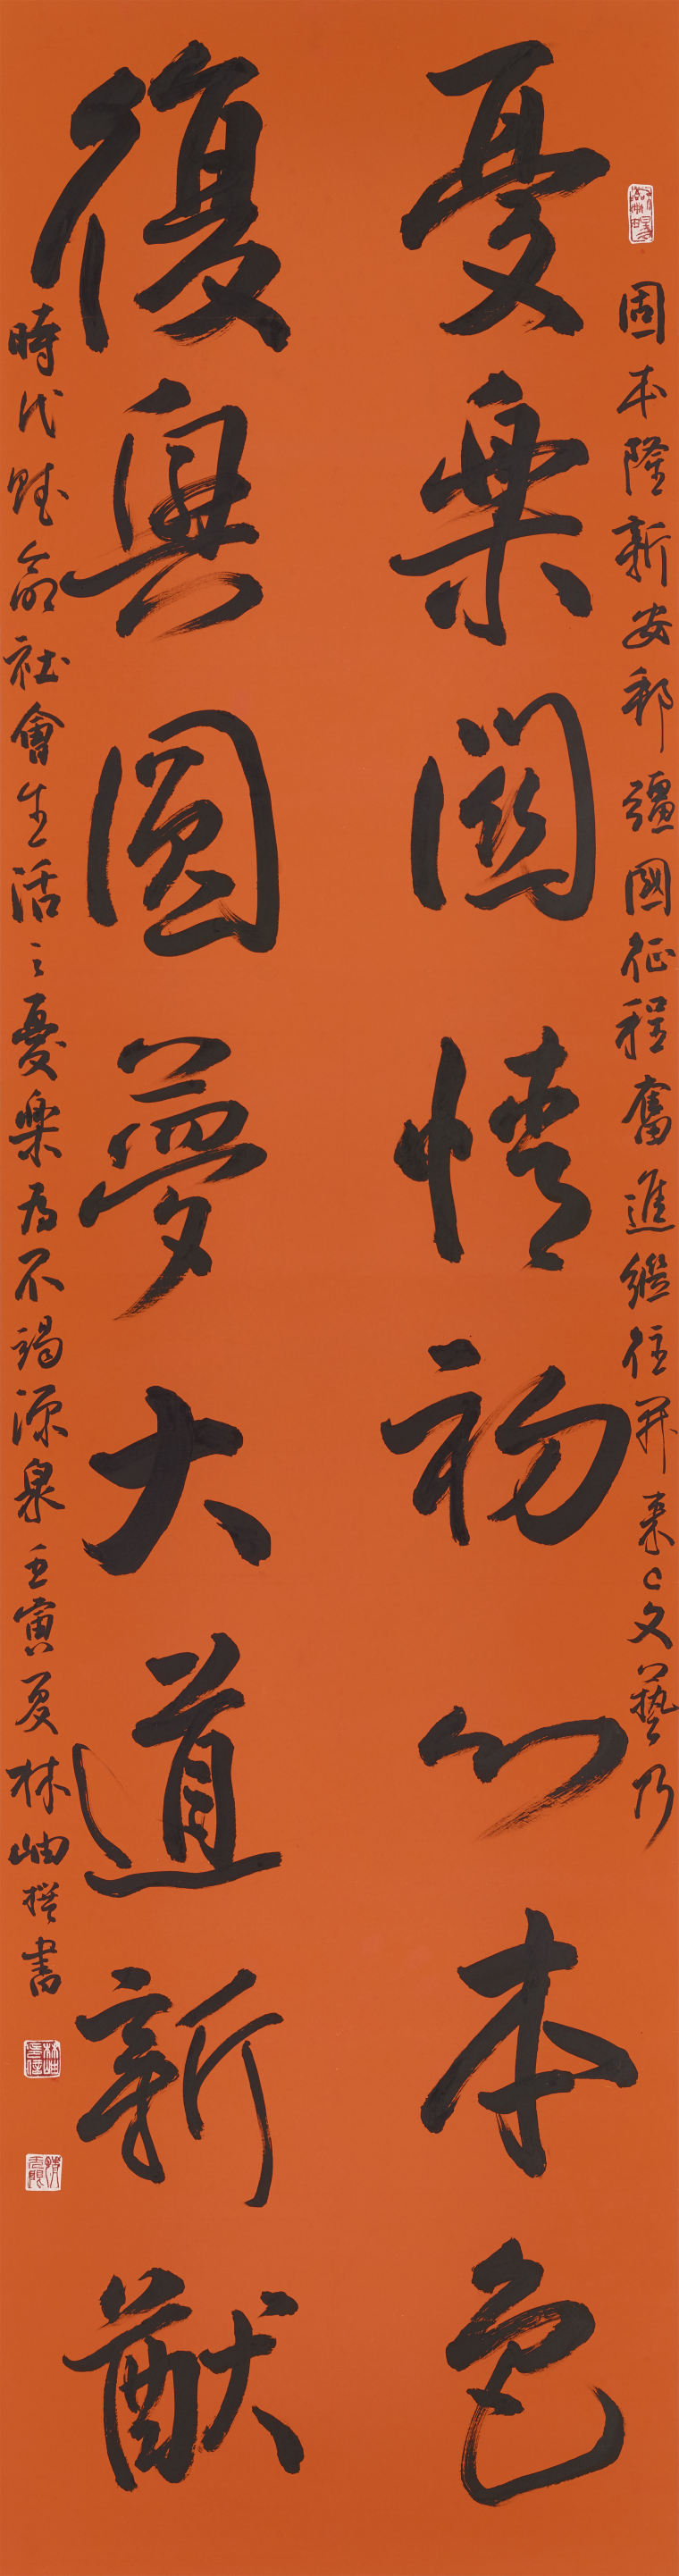 固本隆新安邦疆國征程奮進繼往開來文藝乃
憂樂關情初心本色
復興圓夢大道新猷
時代賦命社會生活之憂樂為不竭源泉壬寅夏林岫撰書